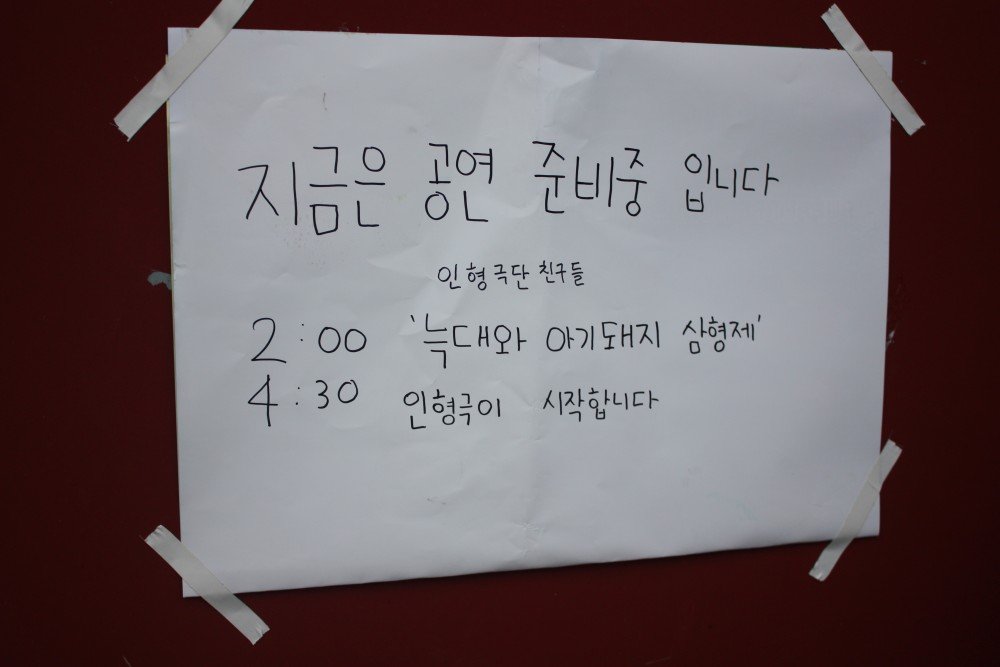 지금은 공연 준비중 입니다
인형극단 친구들
2:00 '늑대와 아기돼지 삼형제'
4:30 인형극이 시작합니다